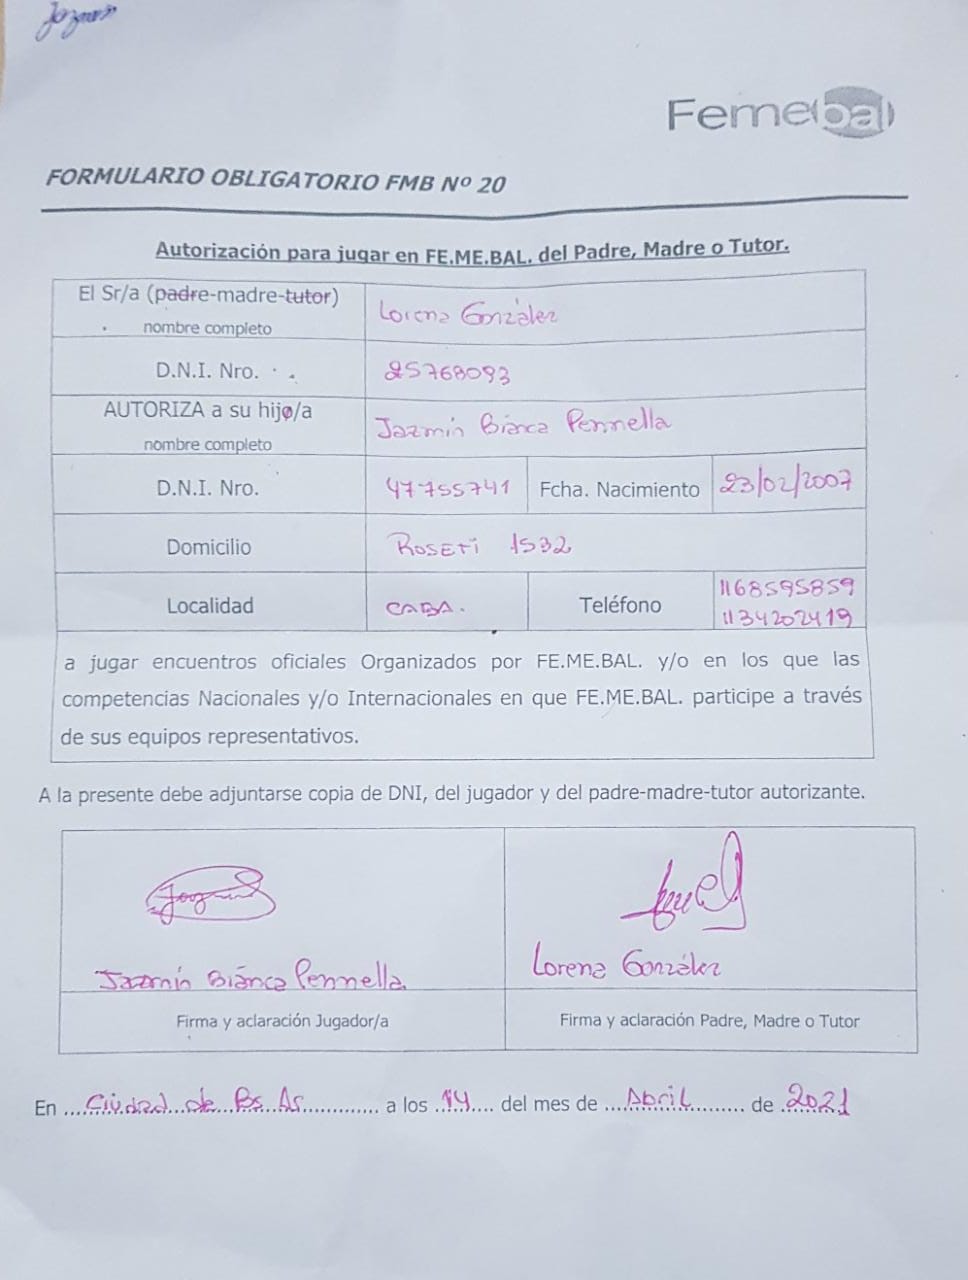 Femebal
FORMULARIO OBLIGATORIO FMB Nº 20
Autorización para jugar en FE.ME.BAL. del Padre, Madre o Tutor.
El Sr/a (padre-madre-tutor)
nombre completo
Lorena González
D.N.I. Nro.
25768093
AUTORIZA a su hijo/a
nombre completo
Jazmín Bianca Pennella
D.N.I. Nro.
47755741
Fcha. Nacimiento
23/02/2007
Domicilio
Roseti 1532
Localidad
CABA.
Teléfono
1168595859
1134202419
a jugar encuentros oficiales Organizados por FE.ME.BAL. y/o en los que las
competencias Nacionales y/o Internacionales en que FE.ME.BAL. participe a través
de sus equipos representativos.
A la presente debe adjuntarse copia de DNI, del jugador y del padre-madre-tutor autorizante.
Jazmín Bianca Pennella
Lorena González
Firma y aclaración Jugador/a
Firma y aclaración Padre, Madre o Tutor
En Ciudad de Bs. As. a los 14 del mes de Abril de 2021